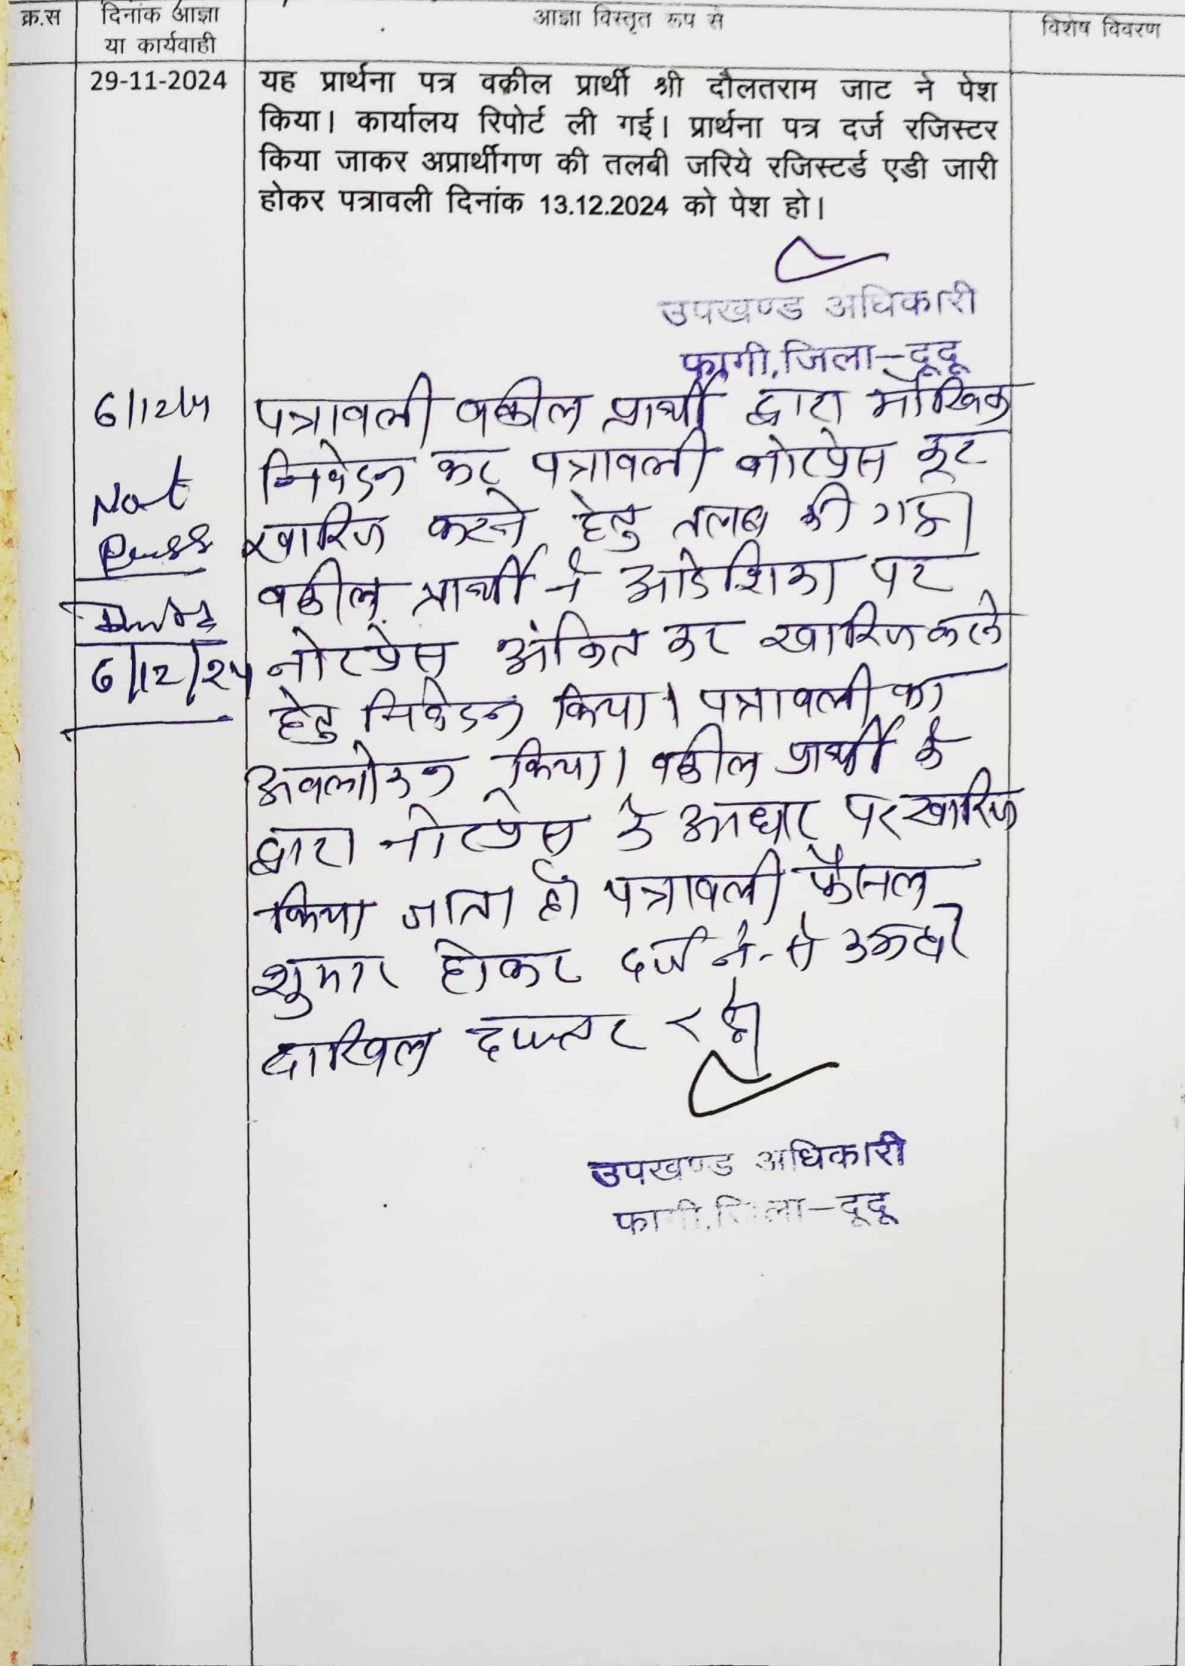 क्र.स
दिनांक आज्ञा
या कार्यवाही
आज्ञा विस्तृत रूप से
विशेष विवरण
29-11-2024
यह प्रार्थना पत्र वकील प्रार्थी श्री दौलतराम जाट ने पेश
किया। कार्यालय रिपोर्ट ली गई। प्रार्थना पत्र दर्ज रजिस्टर
किया जाकर अप्रार्थीगण की तलबी जरिये रजिस्टर्ड एडी जारी
होकर पत्रावली दिनांक 13.12.2024 को पेश हो।
उपखण्ड अधिकारी
फागी,जिला-दूदू
6/12/24
Not
Press
6/12/24
पत्रावली वकील प्रार्थी द्वारा मौखिक
निवेदन कर पत्रावली नोटप्रेस कर
खारिज करने हेतु तलब की गई।
वकील प्रार्थी ने आदेशिका पर
नोटप्रेस अंकित कर खारिज करने
हेतु निवेदन किया। पत्रावली का
अवलोकन किया। वकील प्रार्थी के
द्वारा नोटप्रेस के आधार पर खारिज
किया जाता है। पत्रावली फैसल
शुमार होकर दर्ज नं. से कम हो
दाखिल दफ्तर रहे।
उपखण्ड अधिकारी
फागी,जिला-दूदू